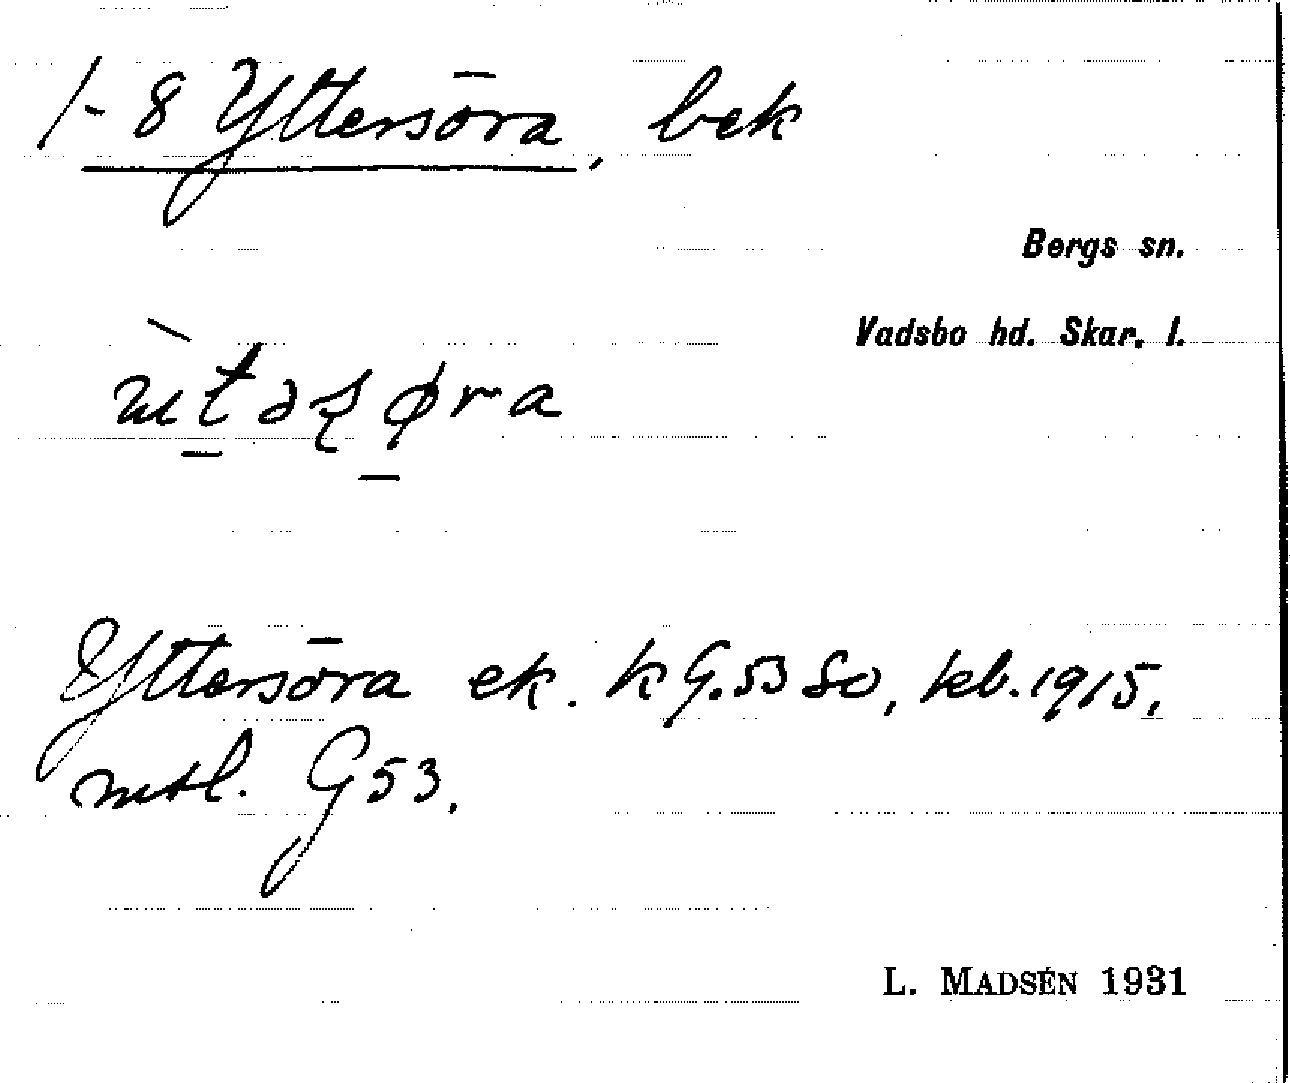 1-8 Yttersöra, bek
Bergs sn.
Vadsbo hd. Skar. l.
Yttersöra ek. k G.53 So, kb. 1915,
mtl. G53.
L. MADSÉN 1931